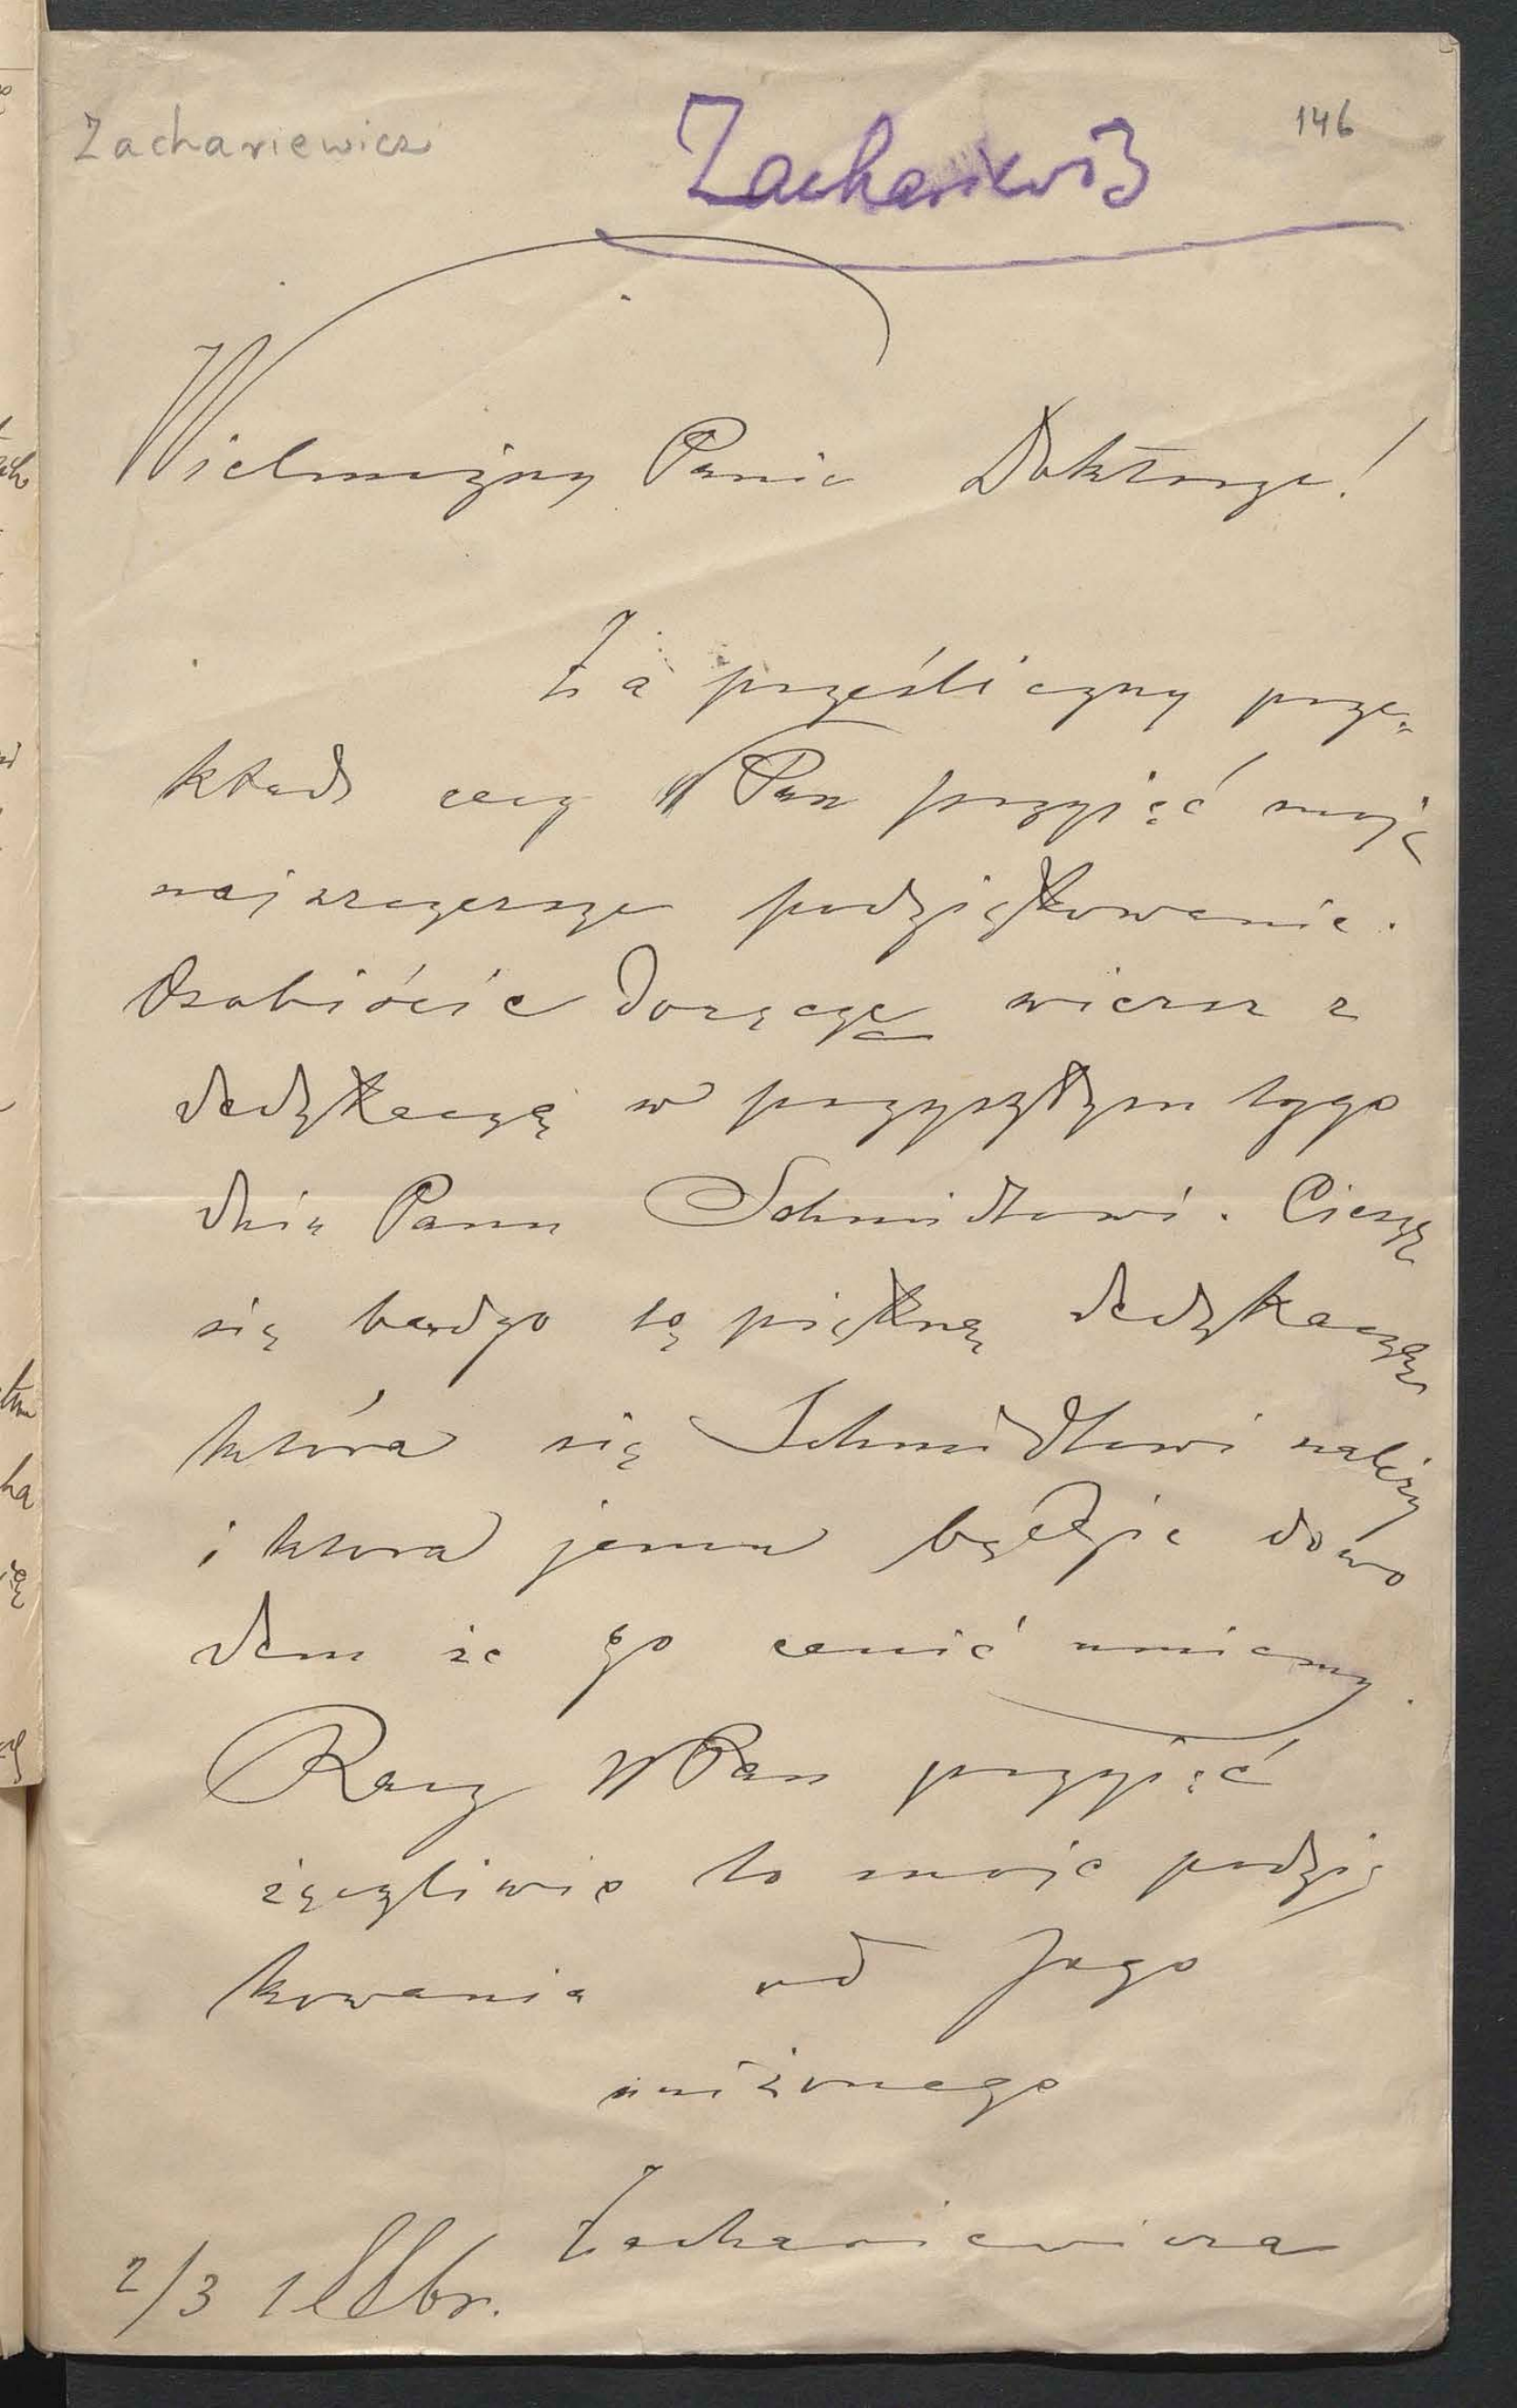 Zachariewicz
Zachariewicz
146
Wielmożny Panie Doktorze!
Za prześliczny prze-
kład racz WPan przyjąć moje
najszczersze podziękowanie.
Osobiście doręczę wiersz z
dedykacyą w przyszłym tygo
dniu Panu Schmidtowi. Cieszę
się bardzo tą piękną dedykacyą
która się Schmidtowi należy
i ktora jemu będzie dowo
dem że go cenić umiemy.
Racz WPan przyjąć
życzliwie to moje podzię
kowanie od Jego
uniżonego
Zachariewicza
2/3 188br.